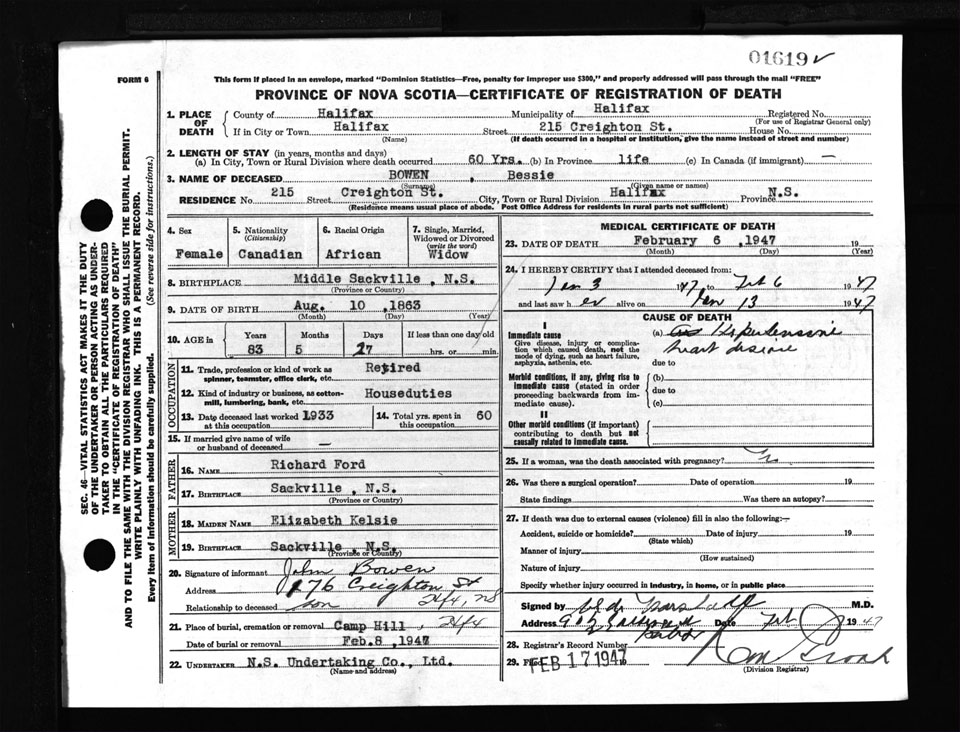 01619 ✓
FORM 6
This form if placed in an envelope, marked "Dominion Statistics—Free, penalty for improper use $300," and properly addressed will pass through the mail "FREE"
PROVINCE OF NOVA SCOTIA—CERTIFICATE OF REGISTRATION OF DEATH
1. PLACE OF DEATH
County of Halifax Municipality of Halifax Registered No.
(For use of Registrar General only)
If in City or Town Halifax Street 215 Creighton St. House No.
(Name) (If death occurred in a hospital or institution, give the name instead of street and number)
2. LENGTH OF STAY (in years, months and days)
(a) In City, Town or Rural Division where death occurred 60 Yrs. (b) In Province life (c) In Canada (if immigrant) —
3. NAME OF DECEASED BOWEN , Bessie
(Surname) (Given name or names)
RESIDENCE No. 215 Street Creighton St. City, Town or Rural Division Halifax Province N.S.
(Residence means usual place of abode. Post Office Address for residents in rural parts not sufficient)
4. Sex
Female
5. Nationality
(Citizenship)
Canadian
6. Racial Origin
African
7. Single, Married, Widowed or Divorced
(write the word)
Widow
8. BIRTHPLACE Middle Sackville, N.S.
(Province or Country)
9. DATE OF BIRTH Aug. 10 ,1863
(Month) (Day) (Year)
10. AGE in
Years Months Days If less than one day old
83 5 27 hrs. or min.
OCCUPATION
11. Trade, profession or kind of work as spinner, teamster, office clerk, etc. Retired
12. Kind of industry or business, as cotton-mill, lumbering, bank, etc. Houseduties
13. Date deceased last worked at this occupation 1933
14. Total yrs. spent in this occupation 60
15. If married give name of wife or husband of deceased —
FATHER
16. NAME Richard Ford
17. BIRTHPLACE Sackville, N.S.
(Province or Country)
MOTHER
18. MAIDEN NAME Elizabeth Kelsie
19. BIRTHPLACE Sackville N.S.
(Province or Country)
20. Signature of informant John Bowen
Address 176 Creighton St
Hfx, NS
Relationship to deceased son
21. Place of burial, cremation or removal Camp Hill, Hfx
Date of burial or removal Feb.8, 1947
22. UNDERTAKER N.S. Undertaking Co., Ltd.
(Name and address)
MEDICAL CERTIFICATE OF DEATH
23. DATE OF DEATH February 6 ,1947 19
(Month) (Day) (Year)
24. I HEREBY CERTIFY that I attended deceased from:
Jan 3 1947 to Feb 6 1947
and last saw her alive on Jan 13 1947
CAUSE OF DEATH
I
Immediate cause
Give disease, injury or complication which caused death, not the mode of dying, such as heart failure, asphyxia, asthenia, etc.
(a) Hypertensive
heart disease
due to
Morbid conditions, if any, giving rise to immediate cause (stated in order proceeding backwards from immediate cause).
(b)
due to
(c)
II
Other morbid conditions (if important) contributing to death but not causally related to immediate cause.
25. If a woman, was the death associated with pregnancy?
26. Was there a surgical operation? Date of operation 19
State findings Was there an autopsy?
27. If death was due to external causes (violence) fill in also the following:—
Accident, suicide or homicide? Date of injury 19
(State which)
Manner of injury
(How sustained)
Nature of injury
Specify whether injury occurred in industry, in home, or in public place
Signed by M.D.
Address Date Feb 1947
28. Registrar's Record Number
29. Filed FEB 17 1947
(Division Registrar)
SEC. 46—VITAL STATISTICS ACT MAKES IT THE DUTY
OF THE UNDERTAKER OR PERSON ACTING AS UNDER-
TAKER TO OBTAIN ALL THE PARTICULARS REQUIRED
IN THE "CERTIFICATE OF REGISTRATION OF DEATH"
AND TO FILE THE SAME WITH THE DIVISION REGISTRAR WHO SHALL ISSUE THE BURIAL PERMIT.
WRITE PLAINLY WITH UNFADING INK. THIS IS A PERMANENT RECORD.
Every item of information should be carefully supplied. (See reverse side for instructions.)